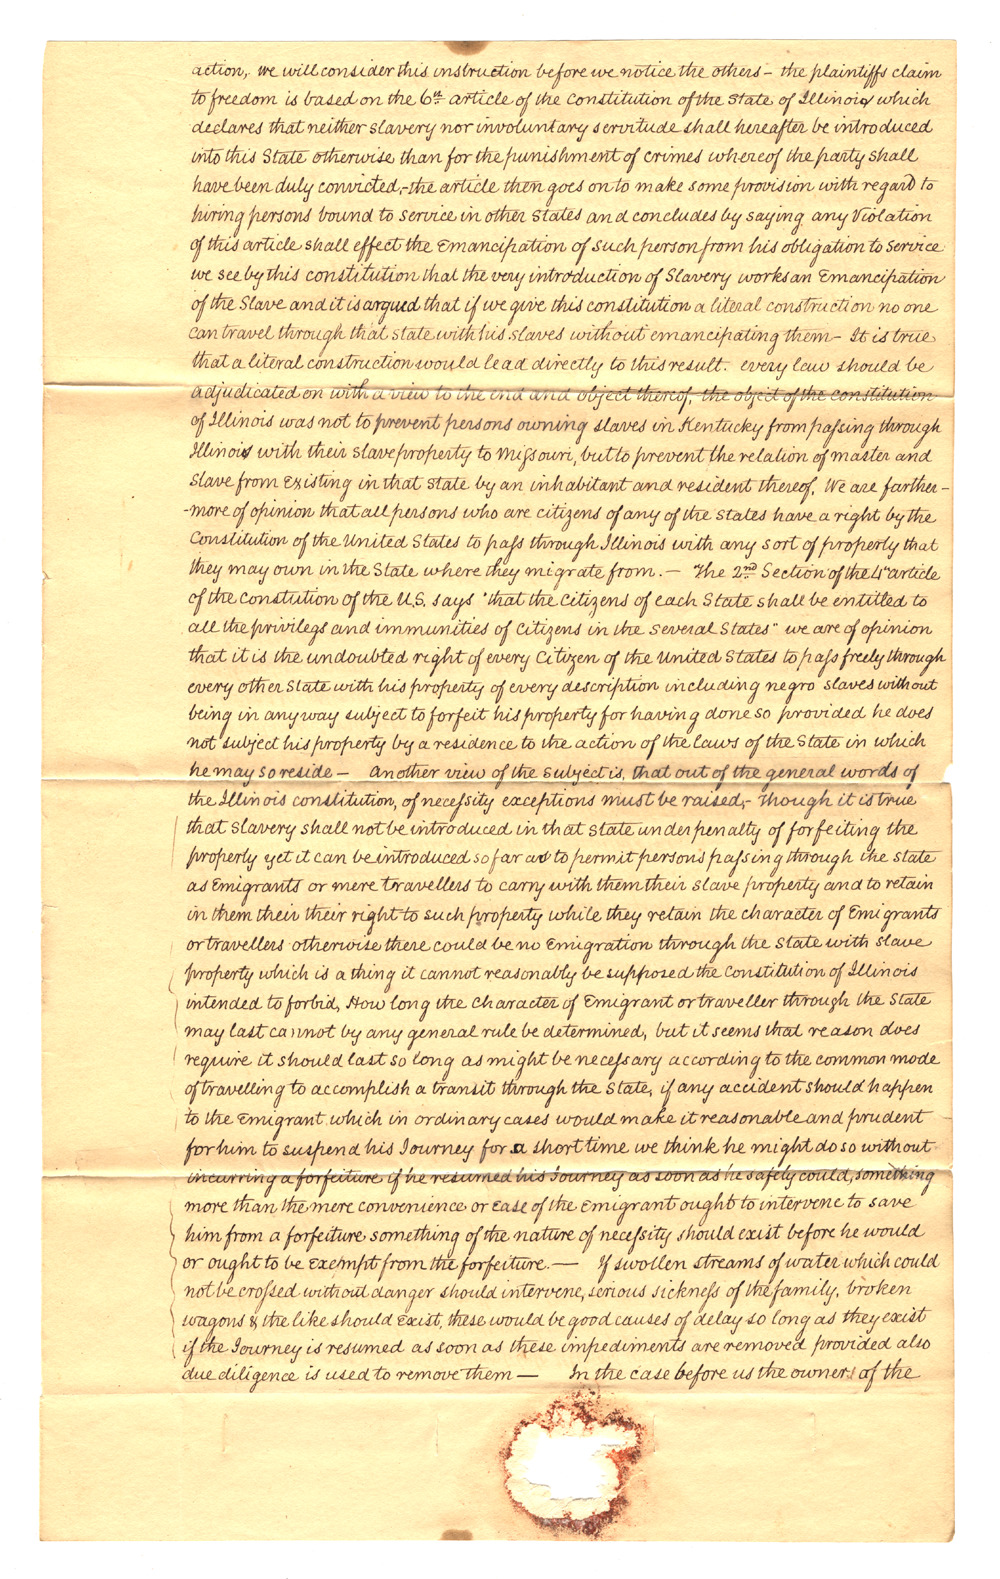 action, we will consider this instruction before we notice the others – the plaintiffs claim
to freedom is based on the 6th article of the constitution of the State of Illinois which
declares that neither slavery nor involuntary servitude shall hereafter be introduced
into this State otherwise than for the punishment of crimes whereof the party shall
have been duly convicted,-the article then goes on to make some provision with regard to
hiring persons bound to service in other States and concludes by saying any Violation
of this article shall effect the Emancipation of such person from his obligation to Service
we see by this constitution that the very introduction of Slavery works an Emancipation
of the Slave and it is argued that if we give this constitution a literal construction no one
can travel through that State with his slaves without emancipating them – It is true
that a literal construction would lead directly to this result. every law should be
adjudicated on with a view to the end and object thereof, the object of the constitution
of Illinois was not to prevent persons owning slaves in Kentucky from passing through
Illinois with their slave property to Missouri, but to prevent the relation of master and
Slave from Existing in that State by an inhabitant and resident thereof. We are farther-
-more of opinion that all persons who are citizens of any of the States have a right by the
Constitution of the United States to pass through Illinois with any sort of property that
they may own in the State where they migrate from. – The 2nd Section of the 4th article
of the constution of the U.S. says "that the Citizens of each State shall be entitled to
all the privilegs and immunities of Citizens in the several States" we are of opinion
that it is the undoubted right of every Citizen of the United States to pass freely through
every other State with his property of every description including negro slaves without
being in any way subject to forfeit his property for having done so provided he does
not subject his property by a residence to the action of the laws of the State in which
he may so reside – Another view of the subject is, that out of the general words of
the Illinois constitution, of necessity exceptions must be raised,- Though it is true
that slavery shall not be introduced in that State under penalty of forfeiting the
property yet it can be introduced so far as to permit persons passing through the State
as Emigrants or mere travellers to carry with them their slave property and to retain
in them their their right to such property while they retain the character of Emigrants
or travellers otherwise there could be no Emigration through the State with slave
property which is a thing it cannot reasonably be supposed the Constitution of Illinois
intended to forbid, How long the Character of Emigrant or traveller through the State
may last cannot by any general rule be determined, but it seems that reason does
require it should last so long as might be necessary according to the common mode
of travelling to accomplish a transit through the State, if any accident should happen
to the Emigrant which in ordinary cases would make it reasonable and prudent
for him to suspend his Journey for a short time we think he might do so without
incurring a forfeiture if he resumed his Journey as soon as he safely could, something
more than the mere convenience or Ease of the Emigrant ought to intervene to save
him from a forfeiture something of the nature of necessity should exist before he would
or ought to be Exempt from the forfeiture. – If swollen streams of water which could
not be crossed without danger should intervene, serious sickness of the family, broken
wagons & the like should Exist, these would be good causes of delay so long as they exist
if the Journey is resumed as soon as these impediments are removed provided also
due diligence is used to remove them – In the case before us the owner of the